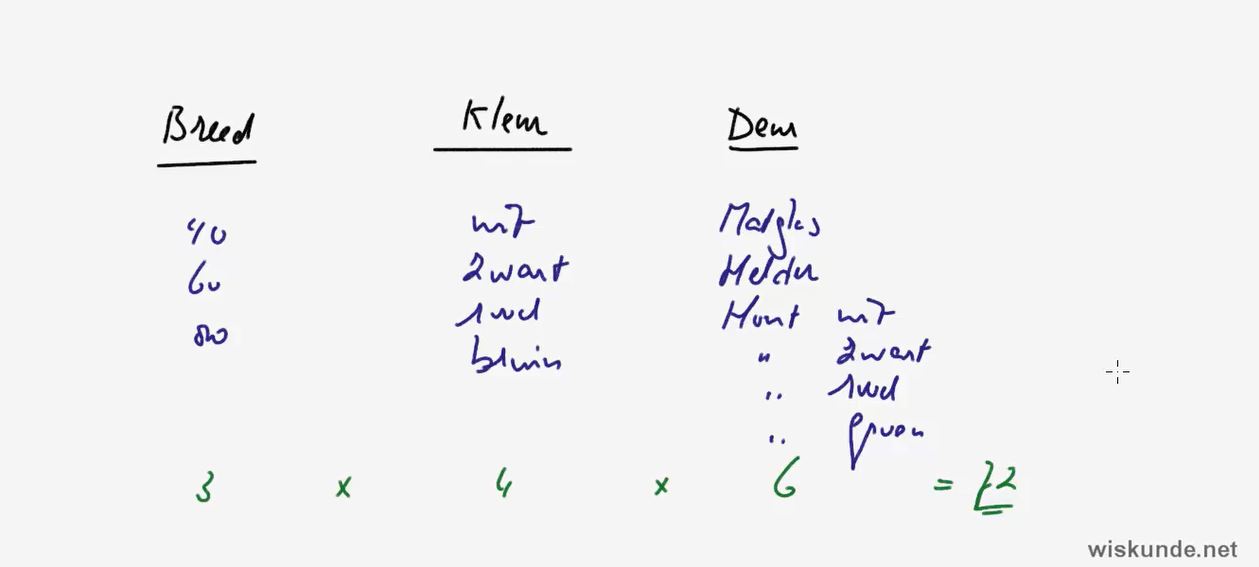 Breed Kleur Deur
40 wit Matglas
60 zwart Helder
80 rood Hout wit
bruin " zwart
" rood
" groen
3 x 4 x 6 = 72
wiskunde.net